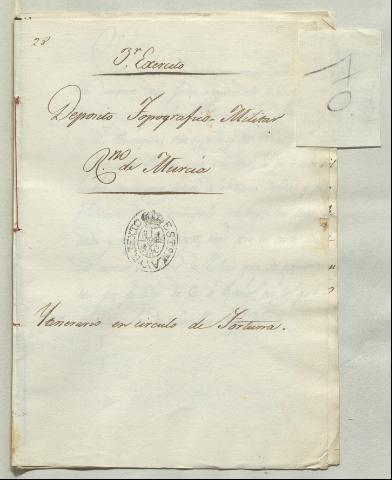 28
3.r Exercito
70.
Deposito Topografico-Militar
R.no de Murcia
Ytenerario en circulo de Fortuna.